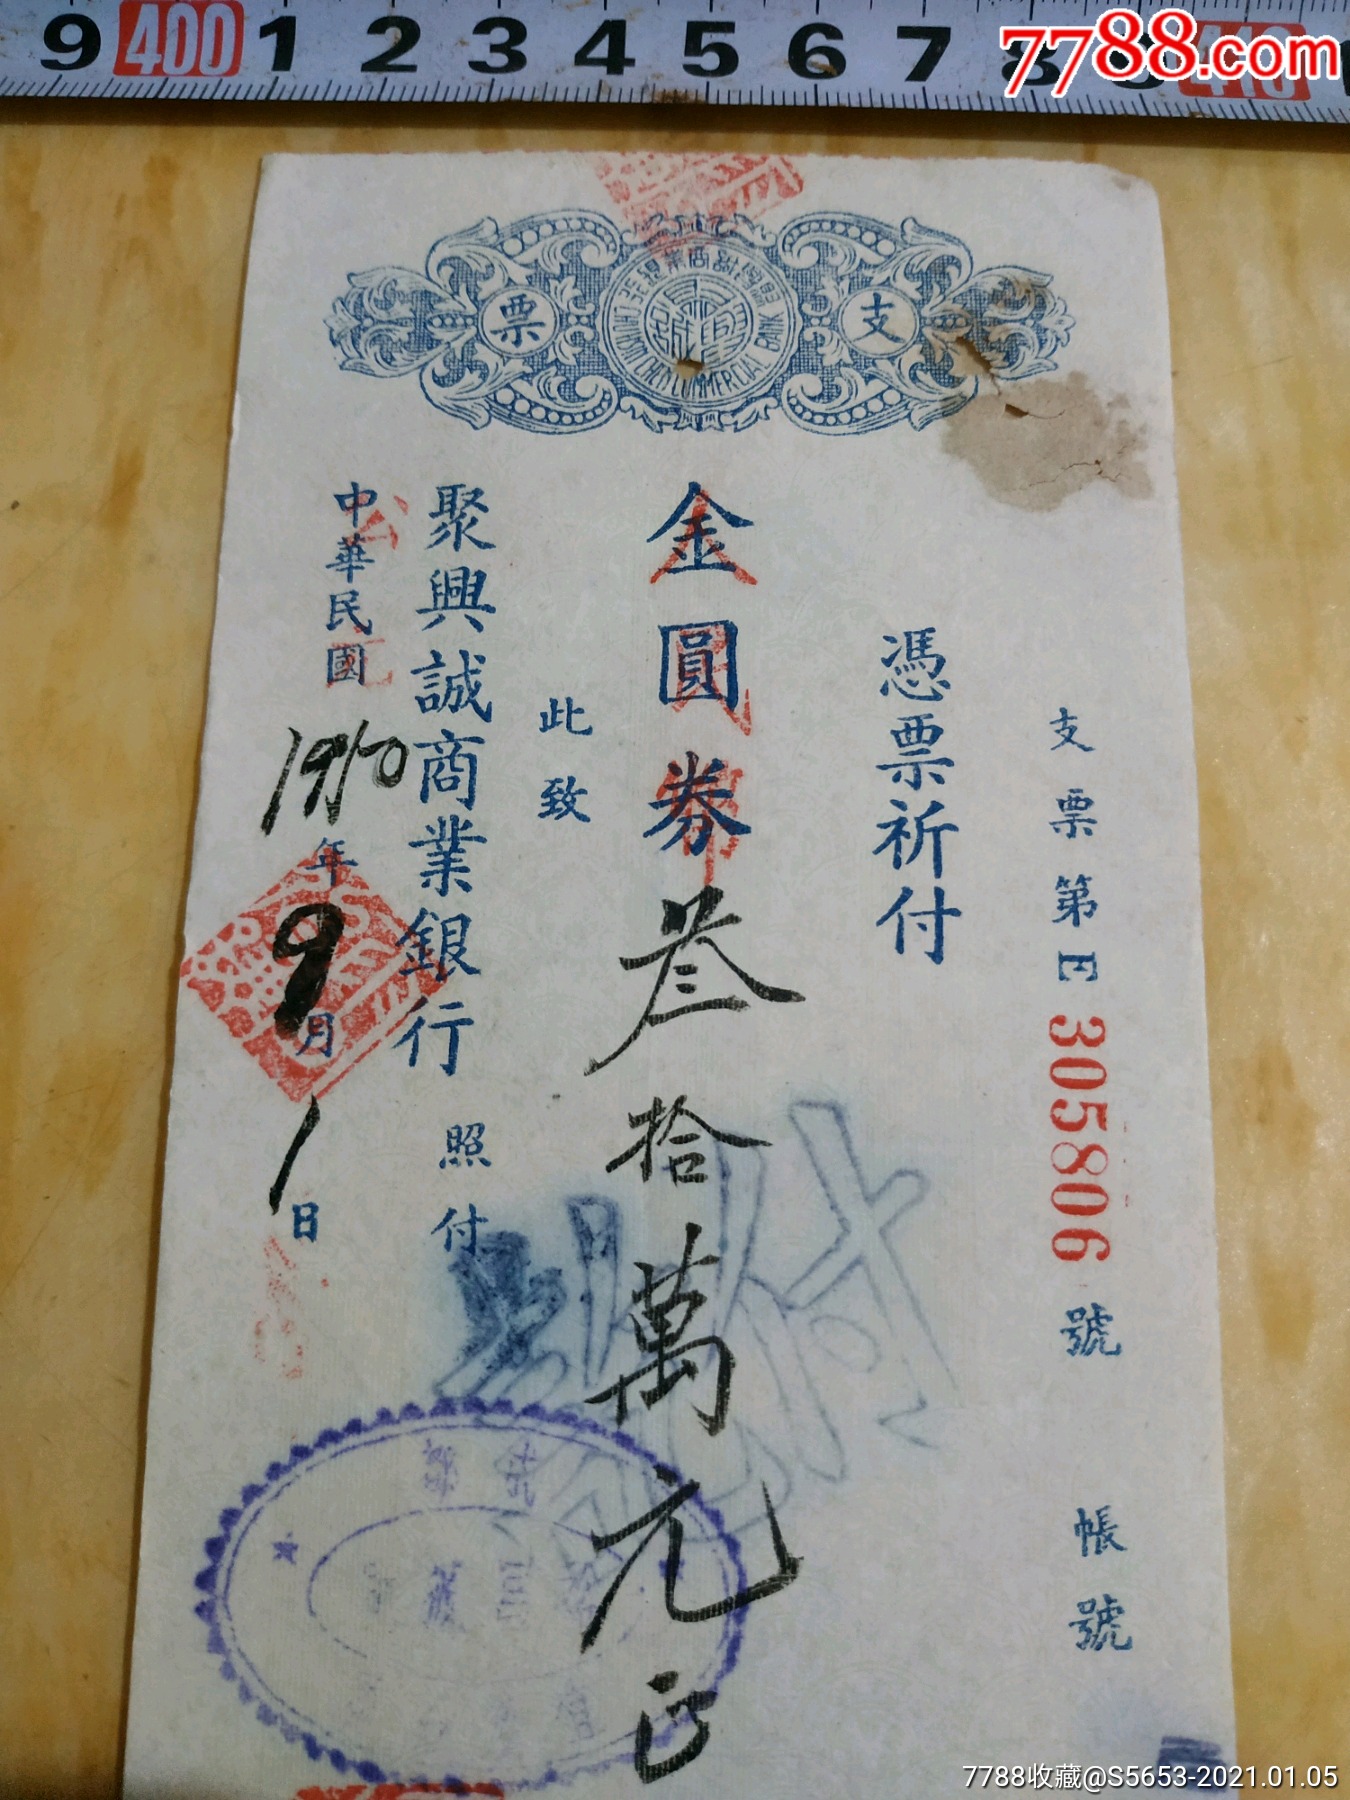 9 400 1 2 3 4 5 6 7 8 9 410
7788.com
支票
聚興誠商業銀行
COMMERCIAL BANK
支票第E305806號
帳號
憑票祈付
金圓券叁拾萬元正
人民幣
此致
聚興誠商業銀行 照付
中華民國1950年9月1日
公元
7788收藏@S5653-2021.01.05